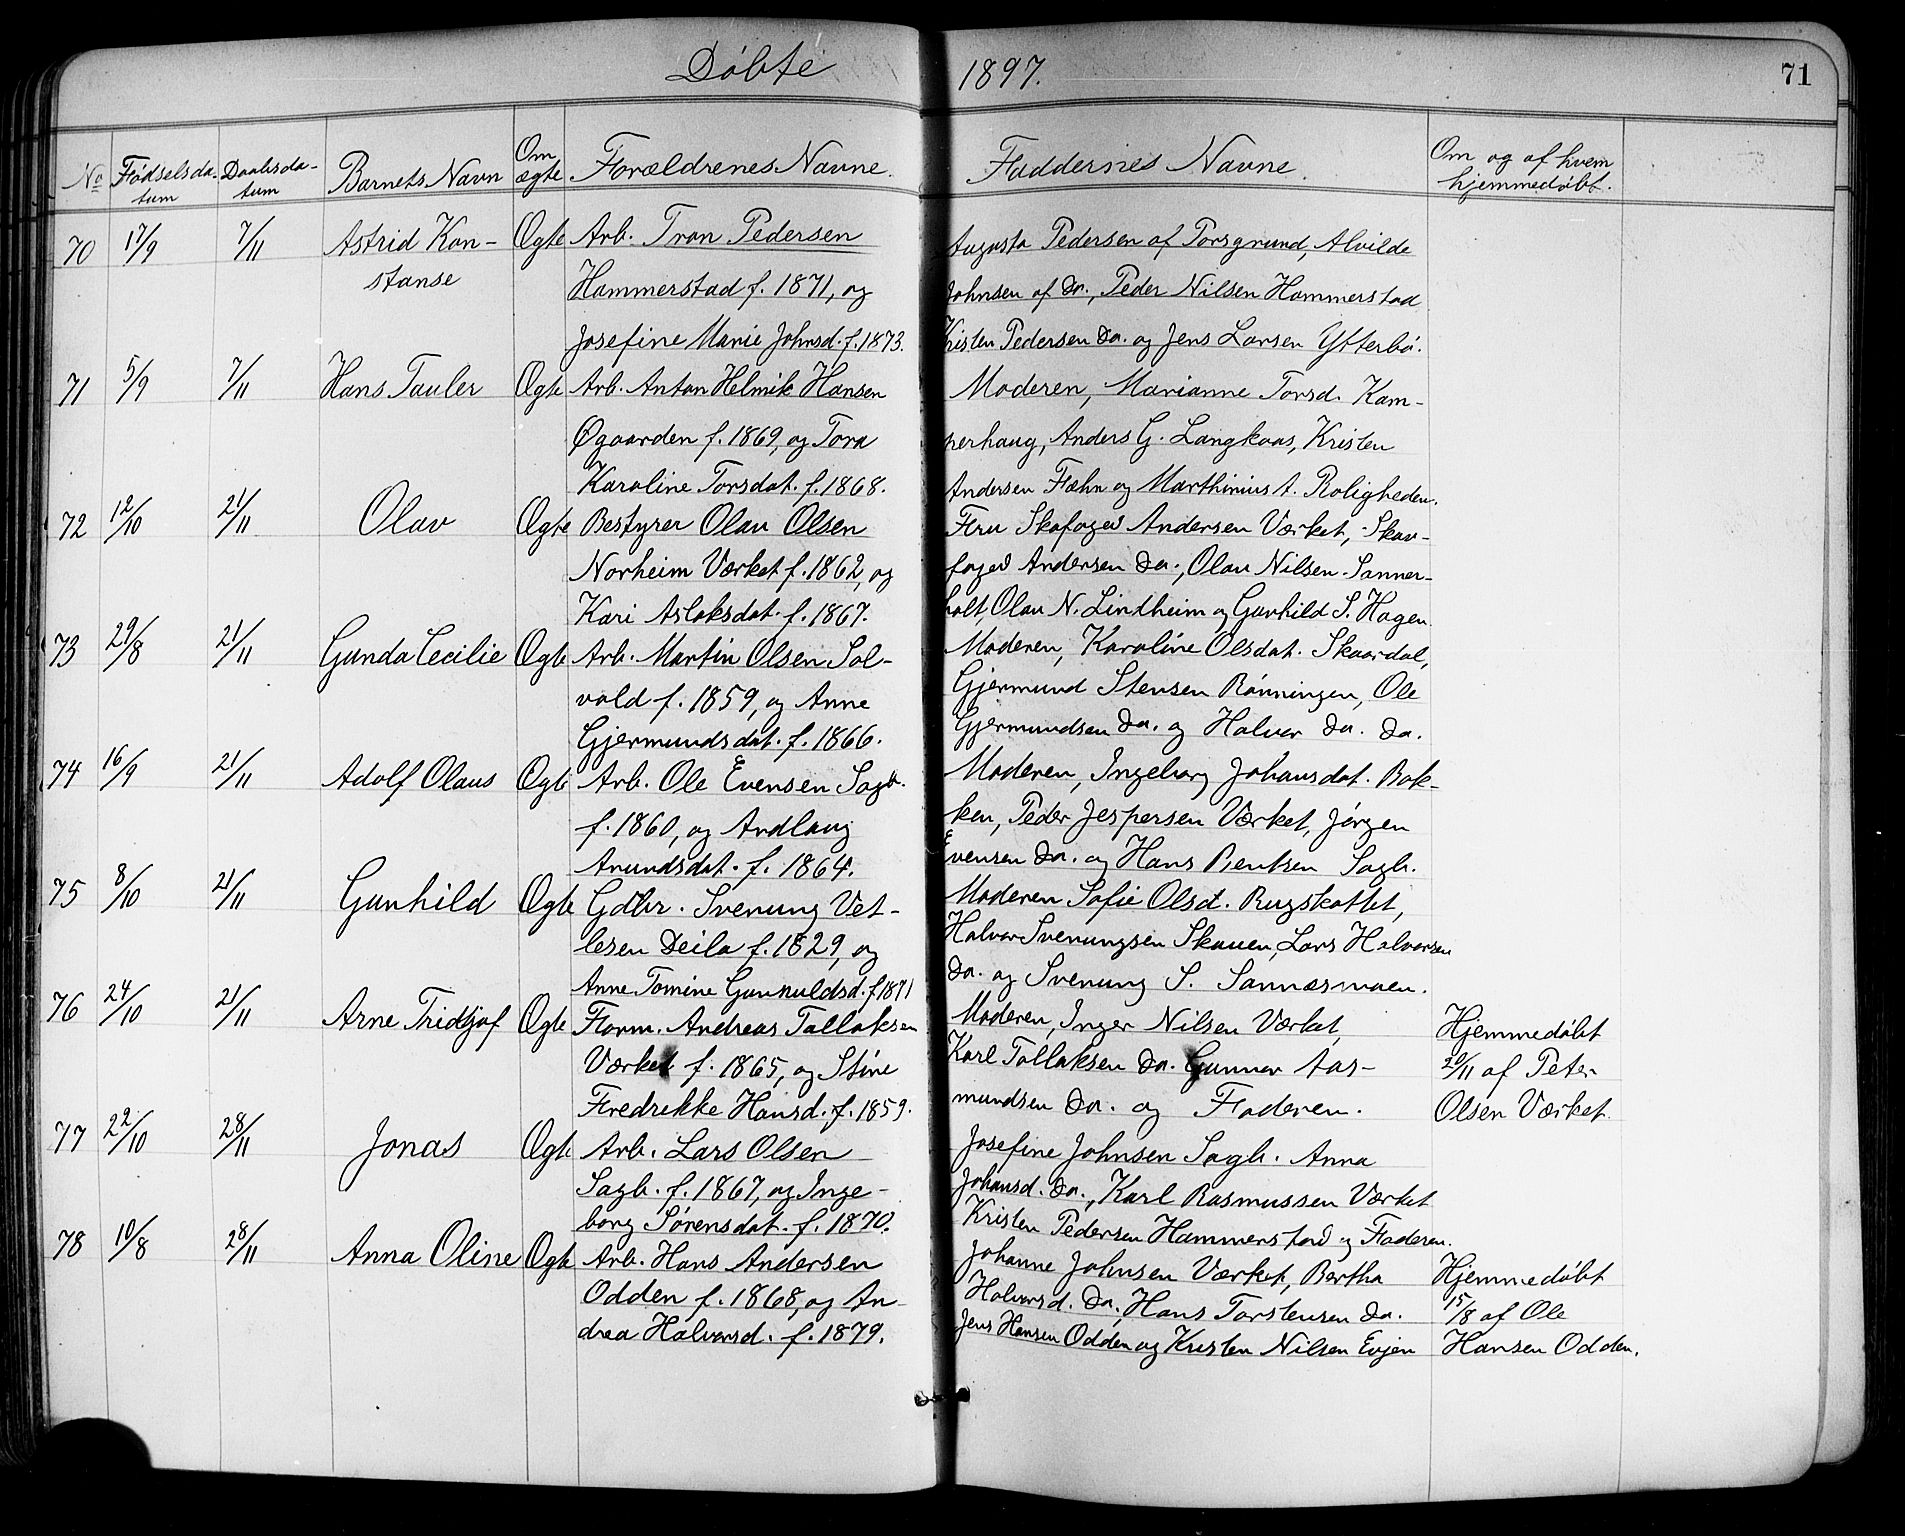 Döbte 1897. 71
No Fødselsda- Daabsda- Barnets Navn Om Forældrenes Navne. Faddernes Navne. Om og af hvem
tum tum ægte hjemmedöbt.
70 17/9 7/11 Astrid Kon- Ægte Arb. Tron Pedersen Augusta Pedersen af Porsgrund, Alvilde
stanse Hammerstad f. 1871, og Johnsen af do., Peder Nilsen Hammerstad
Josefine Marie Johnsd. f. 1873. Kristen Pedersen do. og Jens Larsen Ytterbö.
71 5/9 7/11 Hans Tauler Ægte Arb. Anton Helmik Hansen Moderen, Marianne Torsd. Kam-
Øgaarden f. 1869, og Tora perhaug, Anders G. Langkaas, Kristen
Karoline Torsdat. f. 1868. Andersen Fæhn og Marthinius A. Roligheden.
72 12/10 21/11 Olav Ægte Bestyrer Olav Olsen Fru Skofoged Andersen Værket, Skov-
Norheim Værket f. 1862, og foged Andersen do., Olav Nilsen Sanner-
Kari Aslaksdat. f. 1867. holt, Olav N. Lindheim og Gunhild S. Hagen.
73 29/8 21/11 Gunda Cecilie Ægte Arb. Martin Olsen Sol- Moderen, Karoline Olsdat. Skaardal,
vold f. 1859, og Anne Gjermund Stensen Rönningen, Ole
Gjermundsdat. f. 1866. Gjermundsen do. og Halvor do. do.
74 16/9 21/11 Adolf Olaus Ægte Arb. Ole Evensen Sagb. Moderen, Ingeborg Johansdat. Bak-
f. 1860, og Andlaug ken, Peder Jespersen Værket, Jörgen
Anundsdat. f. 1864. Evensen do. og Hans Bentsen Sagb.
75 8/10 21/11 Gunhild Ægte Gdbr. Svenung Vet- Moderen Sofie Olsd. Rugskottet,
lesen Deila f. 1829, og Halvor Svenungsen Skauen, Lars Halvorsen
Anne Tomine Gunnuldsd. f. 1871 do. og Svenung S. Sannæsmoen.
76 24/10 21/11 Arne Tridtjof Ægte Form. Andreas Tallaksen Moderen, Inger Nilsen Værket, Hjemmedöbt
Værket f. 1865, og Stine Karl Tallaksen do. Gunnar Aas- 20/11 af Peter
Fredrekke Hansd. f. 1859. mundsen do. og Faderen. Olsen Værket.
77 22/10 28/11 Jonas Ægte Arb. Lars Olsen Josefine Johnsen Sagb. Anna
Sagb. f. 1867, og Inge- Johansd. do., Karl Rasmussen Værket
borg Sørensdat. f. 1870. Kristen Pedersen Hammerstad og Faderen.
78 10/8 28/11 Anna Oline Ægte Arb. Hans Andersen Johanne Johnsen Værket, Bertha Hjemmedöbt
Odden f. 1868, og An- Halvorsd. do., Hans Torstensen do. 15/8 af Ole
drea Halvorsd. f. 1879. Jens Hansen Odden og Kristen Nilsen Evjen Hansen Odden.